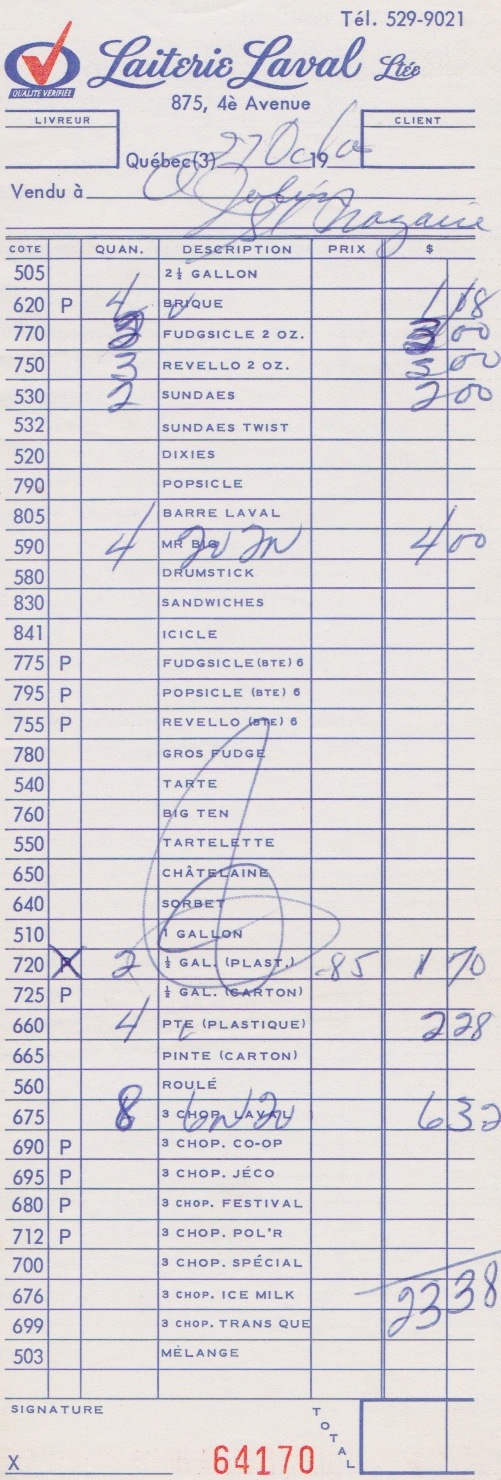 Tél. 529-9021
Laiterie Laval Ltée
QUALITÉ VÉRIFIÉE
875, 4è Avenue
LIVREUR
CLIENT
Québec(3) 27 Oc 19
Vendu à
St Nazaire
COTE QUAN. DESCRIPTION PRIX $
505 2½ GALLON
620 P 4 v BRIQUE 1 18
770 3 FUDGSICLE 2 OZ. 3 00
750 3 REVELLO 2 OZ. 3 00
530 2 SUNDAES 2 00
532 SUNDAES TWIST
520 DIXIES
790 POPSICLE
805 BARRE LAVAL
590 4 MR BIG 2v 2N 4 00
580 DRUMSTICK
830 SANDWICHES
841 ICICLE
775 P FUDGSICLE (BTE) 6
795 P POPSICLE (BTE) 6
755 P REVELLO (BTE) 6
780 GROS FUDGE
540 TARTE
760 BIG TEN
550 TARTELETTE
650 CHÂTELAINE
640 SORBET
510 1 GALLON
720 P 2 ½ GAL. (PLAST.) .85 1 70
725 P ½ GAL. (CARTON)
660 4 PTE (PLASTIQUE) 2 28
665 PINTE (CARTON)
560 ROULÉ
675 8 3 CHOP. LAVAL 6N 2v 6 32
690 P 3 CHOP. CO-OP
695 P 3 CHOP. JÉCO
680 P 3 CHOP. FESTIVAL
712 P 3 CHOP. POL'R
700 3 CHOP. SPÉCIAL
676 3 CHOP. ICE MILK
23 38
699 3 CHOP. TRANS QUE
503 MÉLANGE
SIGNATURE
TOTAL
X
64170